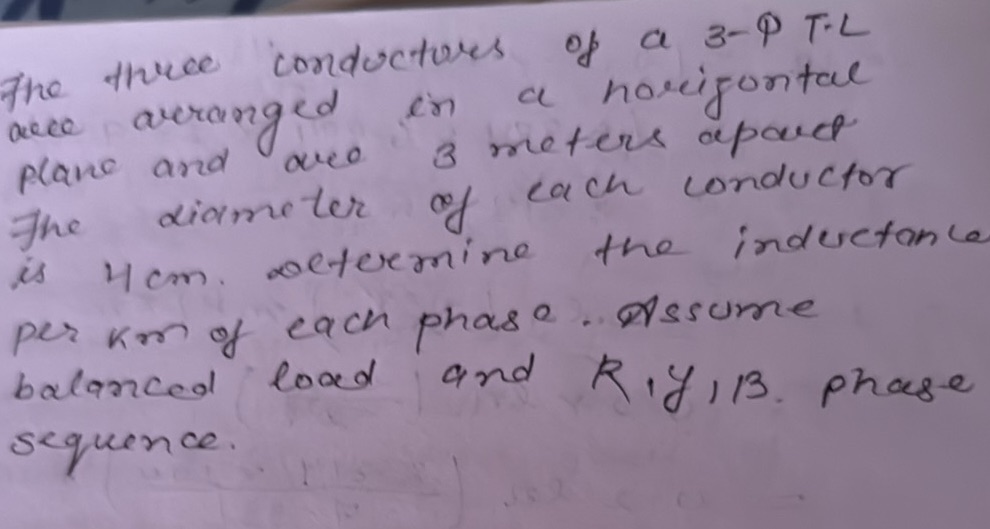 The three conductors of a 3-Φ T.L
are arranged in a horizontal
plane and are 3 meters apart
The diameter of each conductor
is 4cm. Determine the inductance
per km of each phase. Assume
balanced load and R, Y, B. phase
sequence.